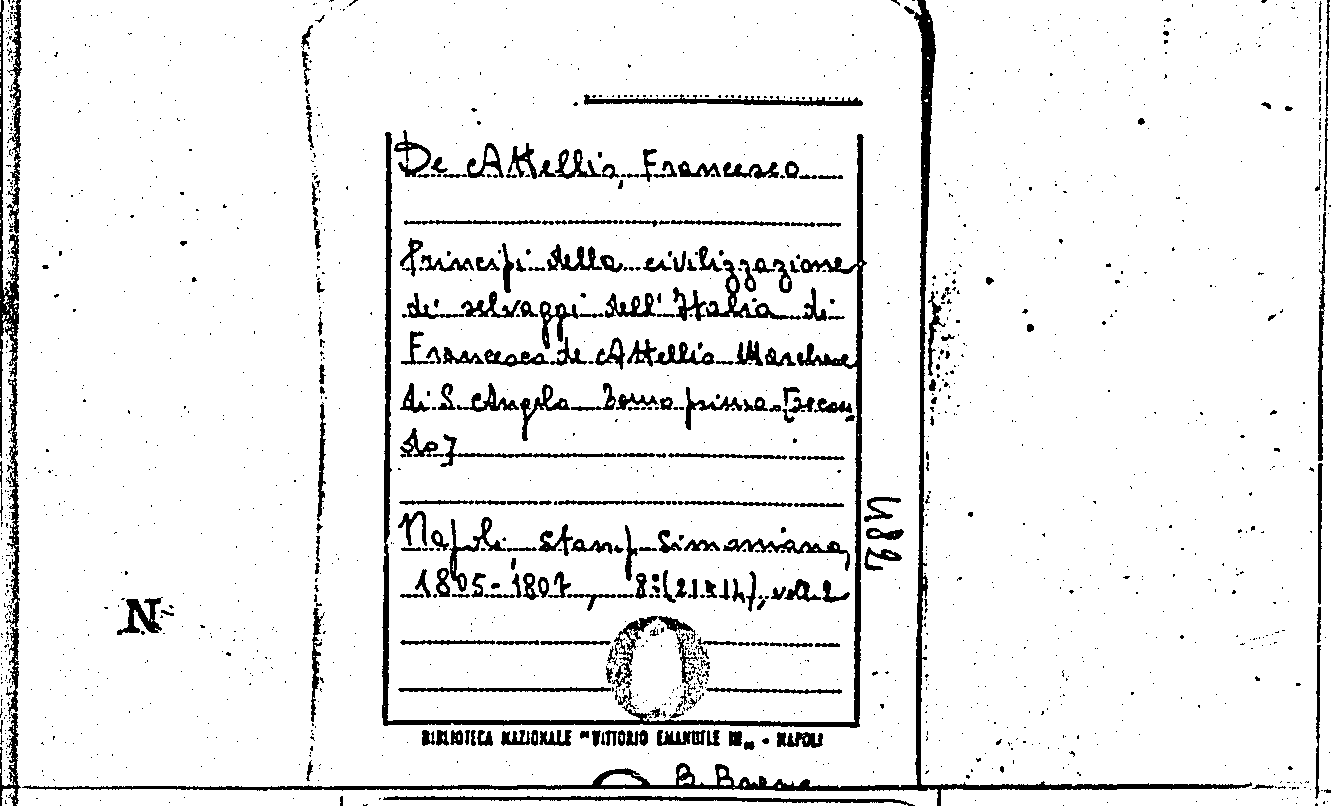 De Attellis, Francesco
Principi della civilizzazione
de' selvaggi dell'Italia di
Francesco de Attellis Marchese
di S. Angelo Tomo primo [secon
do]
Napoli, stamp. Simoniana,
1805-1807, 8:(21x14), voll. 2
482
N
BIBLIOTECA NAZIONALE "VITTORIO EMANUELE III" - NAPOLI
B.